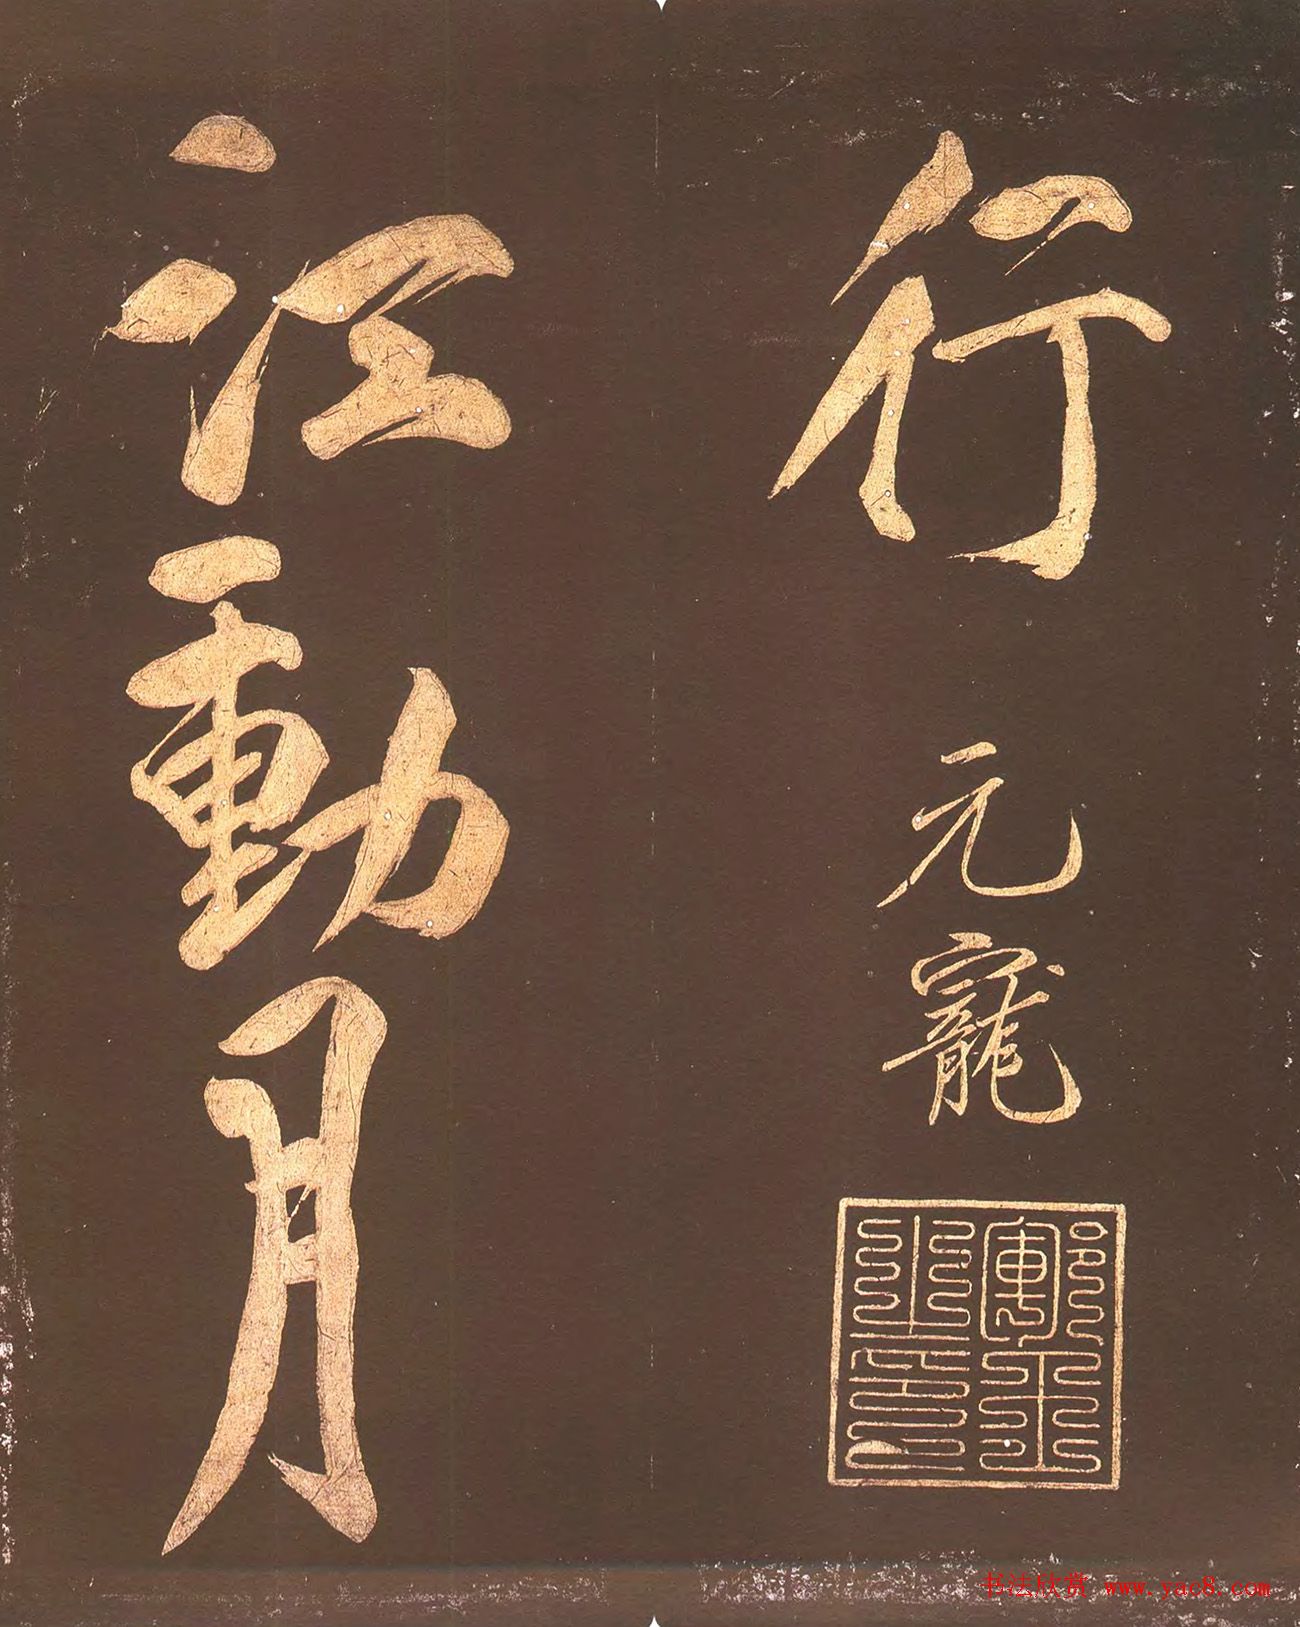 行 元寵
江動月
书法欣赏 www.yac8.com